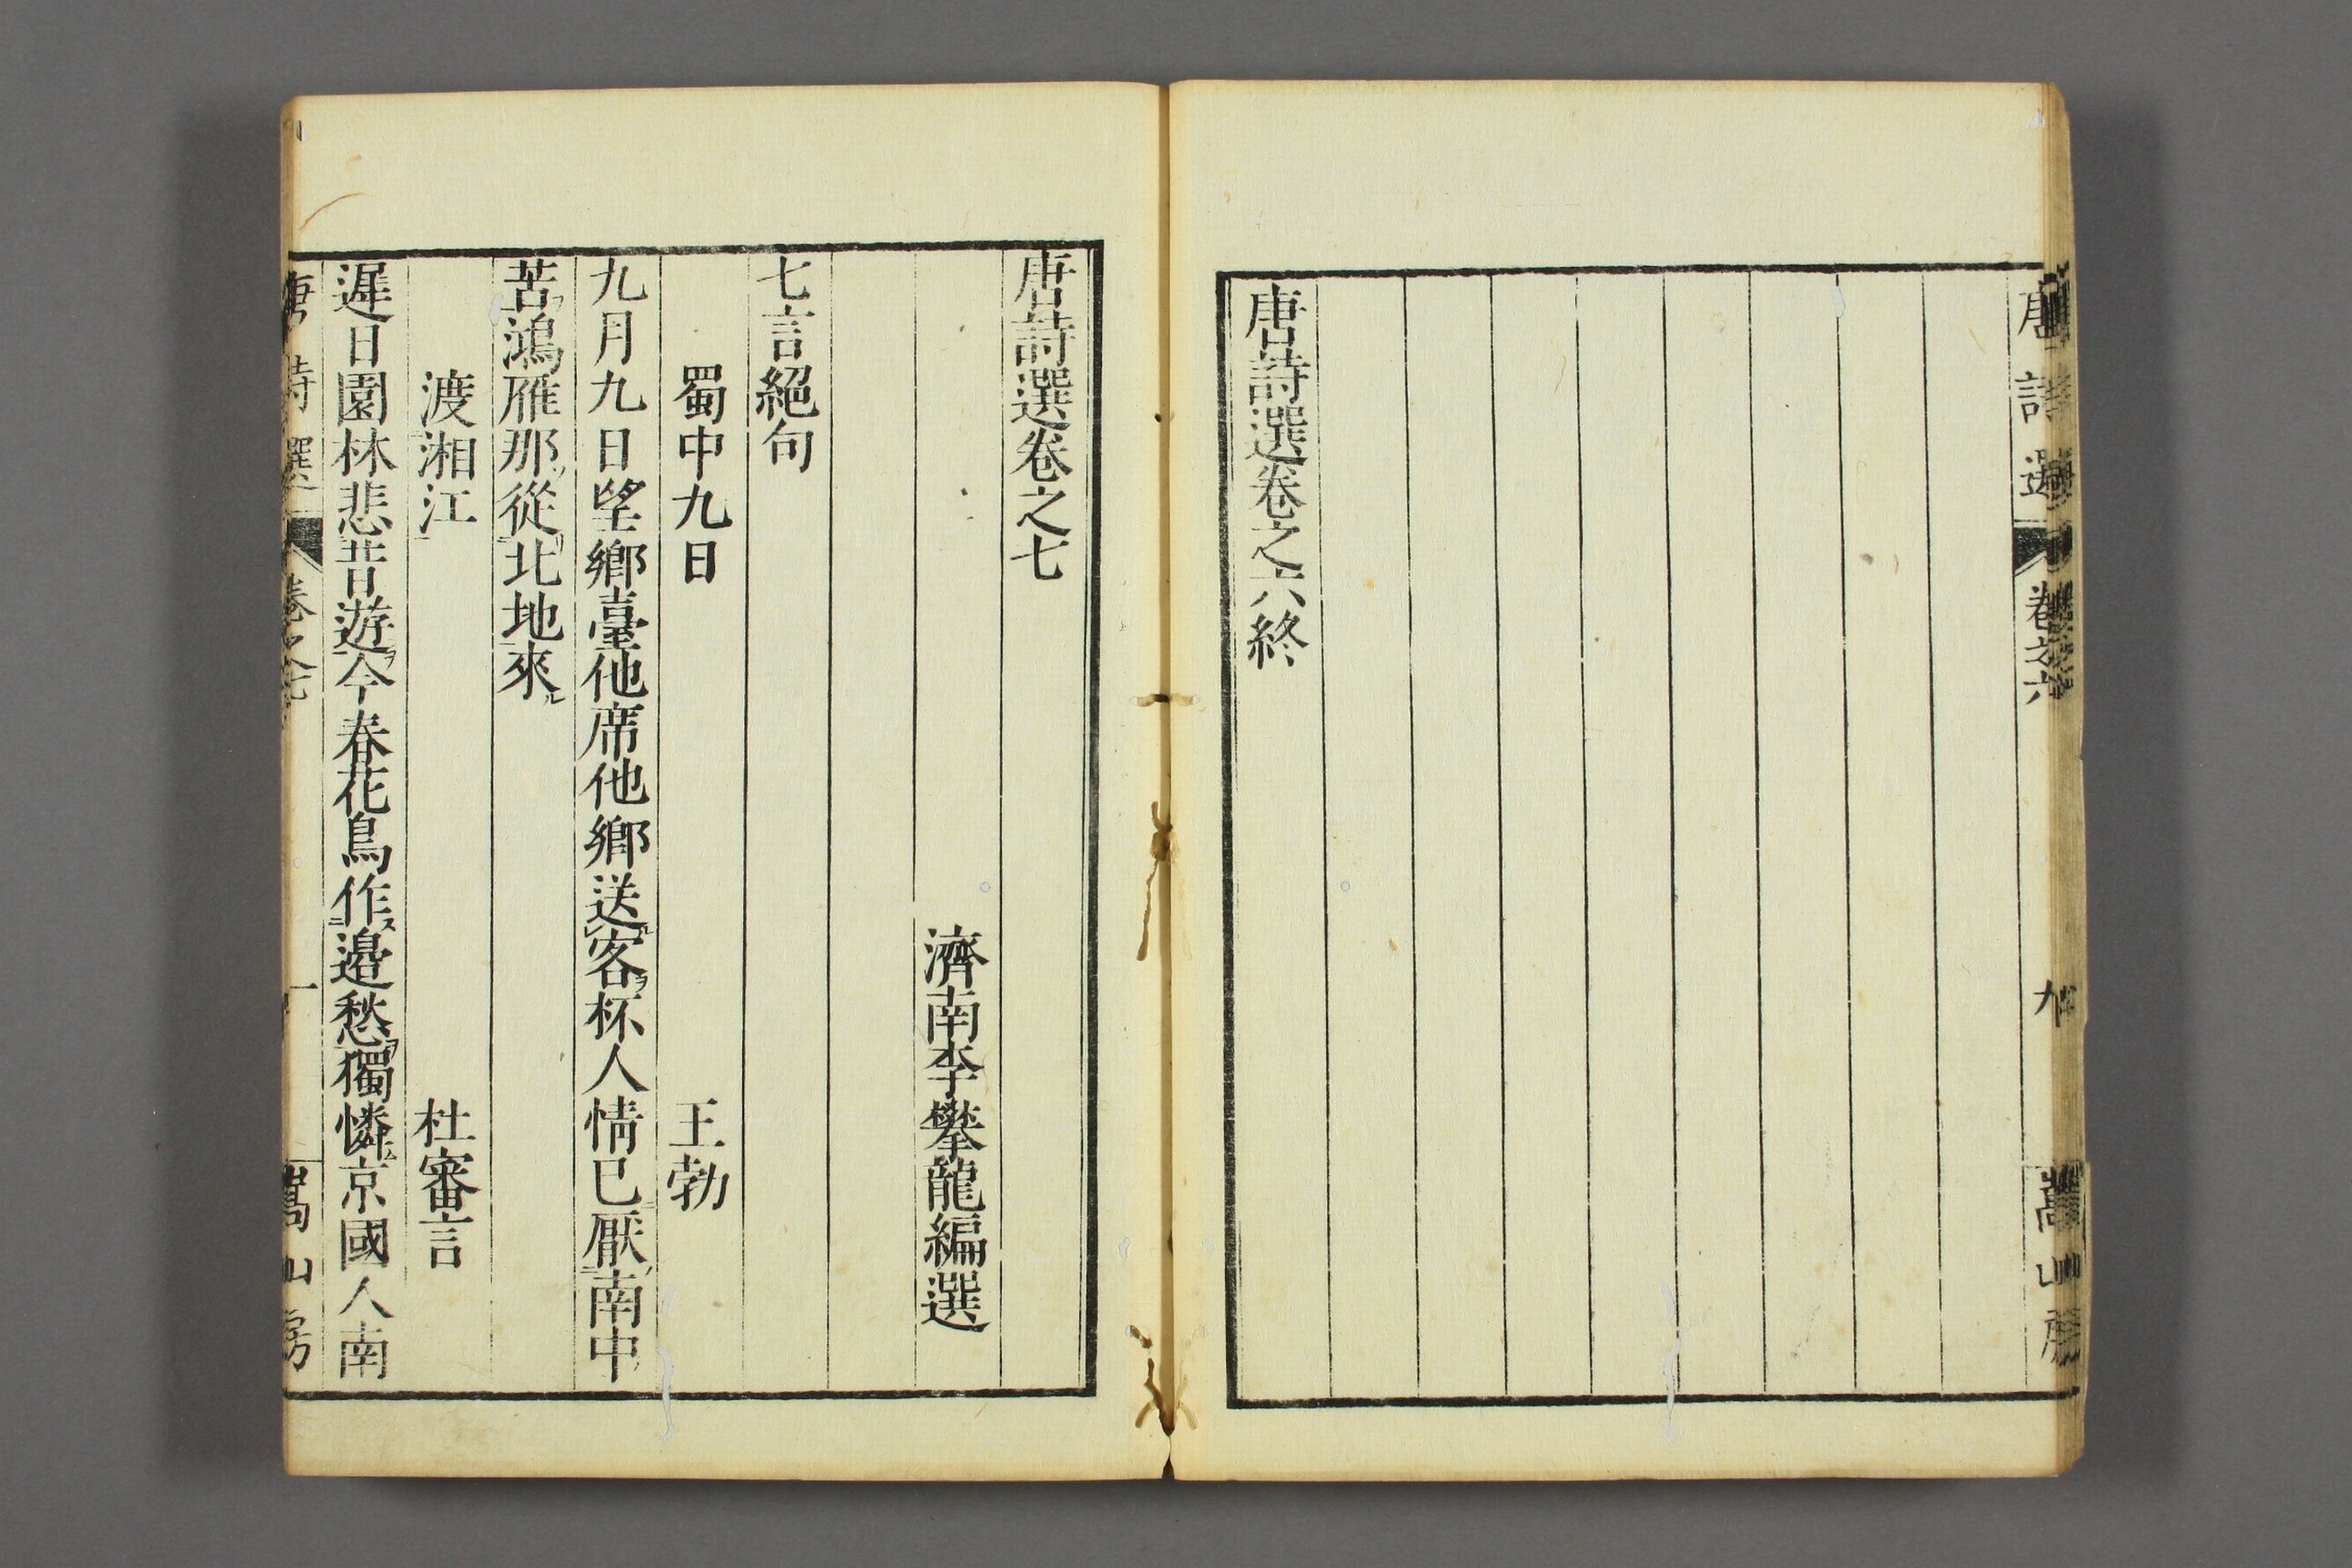 唐詩選 卷之六 九 嵩山房
唐詩選卷之六終
唐詩選卷之七
濟南李攀龍編選
七言絕句
蜀中九日 王勃
九月九日望鄉臺他席他鄉送客杯人情已厭南中
苦鴻雁那從北地來
渡湘江 杜審言
遲日園林悲昔遊今春花鳥作邉愁獨憐京國人南
唐詩選 卷之七 一 嵩山房